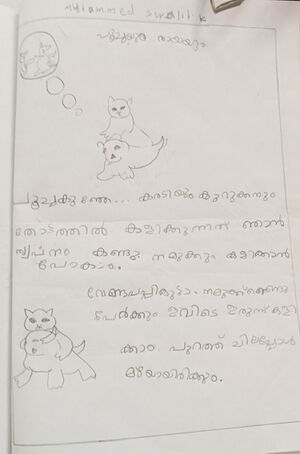 Muhammed Swalih k
പൂച്ചയും നായയും
പൂച്ചക്കുഞ്ഞേ... കരടിയും കുറുക്കനും
തോട്ടത്തിൽ കളിക്കുന്നത് ഞാൻ
സ്വപ്നം കണ്ടു. നമുക്കും കളിക്കാൻ
പോകാം.
വേണ്ടപ്പട്ടിക്കുട്ടാ. നമുക്ക് രണ്ടു
പേർക്കും ഇവിടെ ഇരുന്ന് കളി
ക്കാം. പുറത്ത് ചിലപ്പോൾ
മഴയായിരിക്കും.